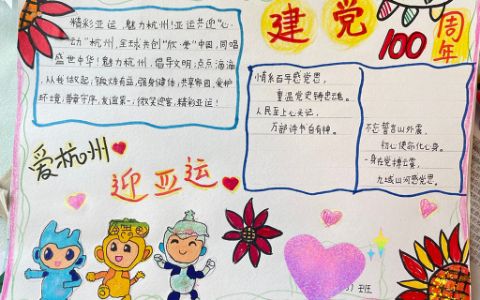 精彩亚运,魅力杭州!亚运共迎"心
动"杭州,全球共创"欣·荣"中国,同唱
盛世中华!魅力杭州,倡导文明:点点滴滴,
从我做起,锻炼有益,强身健体;共享家园,爱护
环境;遵章守序,友谊第一,微笑迎客,精彩亚运!
建党
100
周年
情系百年感党恩,
重温党史铸忠魂。
人民至上心头记,
万部诗书自有神。
不忘誓言山外震,
初心使命化心身。
一身在党
九域山河感党恩。
爱杭州
迎亚运
班